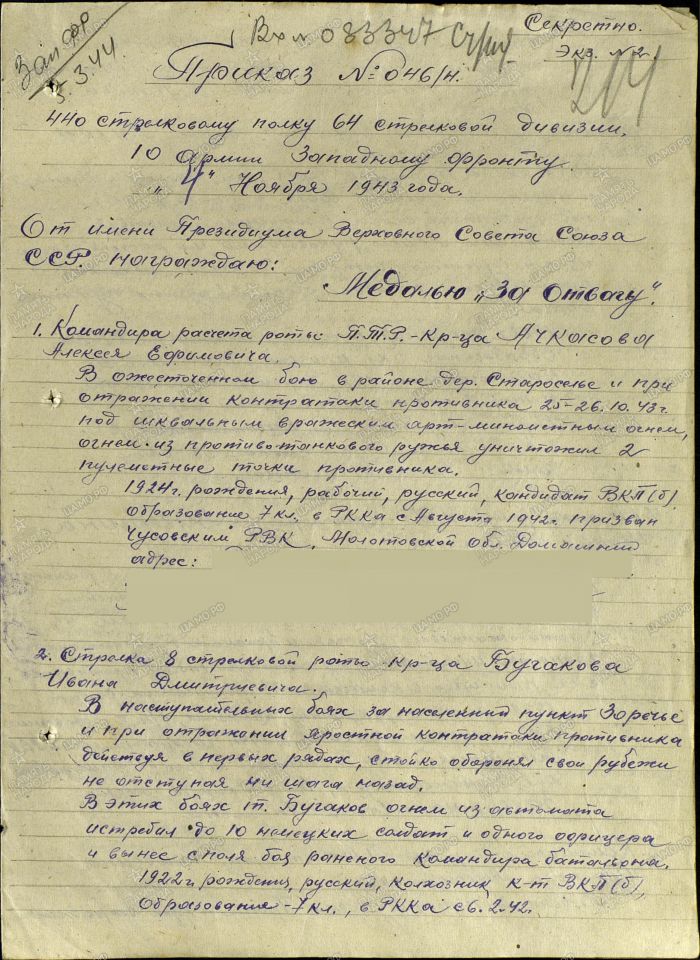 Зап. фр
5.3.44
Вх № 033347
Секретно.
Экз. №2.
204
Приказ №: 046/н.
440 стрелковому полку 64 стрелковой дивизии.
10 Армии Западному фронту.
"4" Ноября 1943 года.
От имени Президиума Верховного Совета Союза
ССР. награждаю:
Медалью „За отвагу".
1. Командира расчета роты П.Т.Р. - Кр-ца Ачкасова
Алексея Ефимовича.
В ожесточенном бою в районе дер. Староселье и при
отражении контратаки противника 25-26.10.43 г.
под шквальным вражеским арт-минометным огнем,
огнем из противотанкового ружья уничтожил 2
пулеметные точки противника.
1924 г. рождения, рабочий, русский, кандидат ВКП(б)
образование 7 кл., в РККА с Августа 1942 г. призван
Чусовским РВК, Молотовской обл. Домашний
адрес:
2. Стрелка 8 стрелковой роты кр-ца Бучакова
Ивана Дмитриевича.
В наступательных боях за населенный пункт Заречье
и при отражении яростной контратаки противника
действуя в первых рядах, стойко оборонял свои рубежи
не отступая ни шага назад.
В этих боях т. Бучаков огнем из автомата
истребил до 10 немецких солдат и одного офицера
и вынес с поля боя раненого командира батальона.
1922 г. рождения, русский, колхозник к-т ВКП(б),
образование - 7 кл., в РККА с 6.2.42.